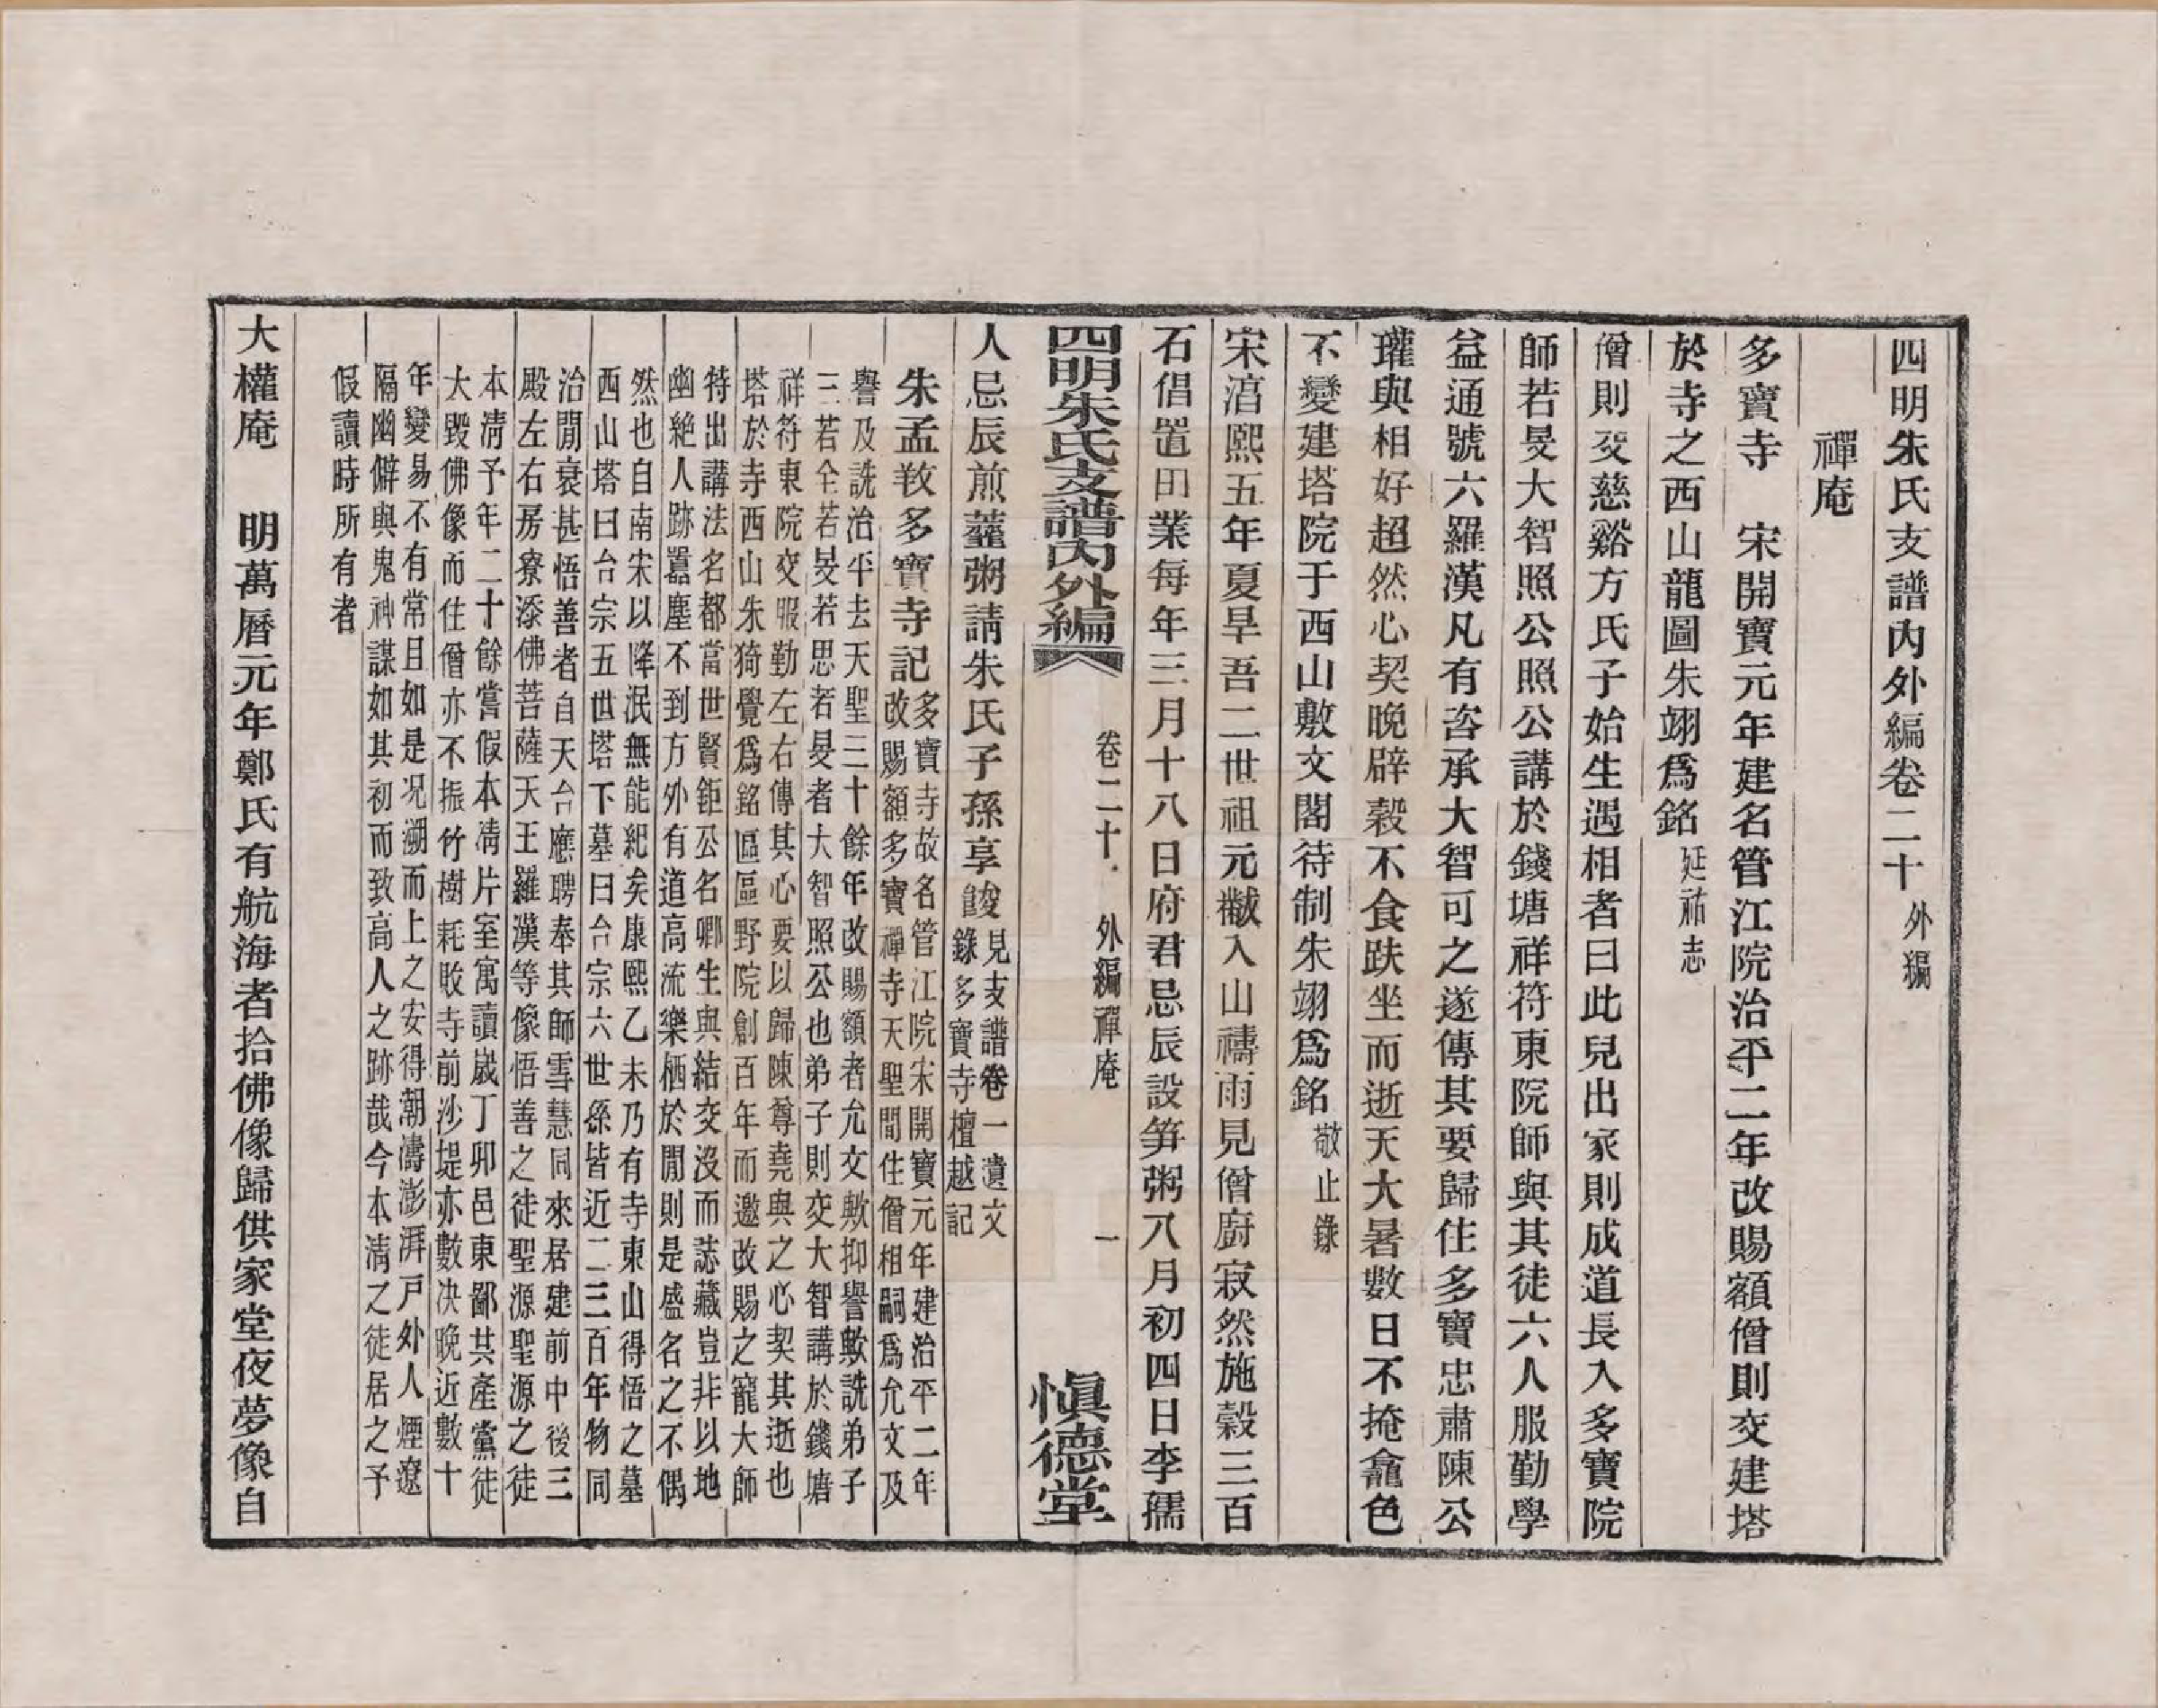 四明朱氏支譜內外編卷二十 外編
禪庵
多寶寺 宋開寶元年建名管江院治平二年改賜額僧則交建塔
於寺之西山龍圖朱翊爲銘 延祐志
僧則交慈谿方氏子始生遇相者曰此兒出家則成道長入多寶院
師若旻大智照公照公講於錢塘祥符東院師與其徒六人服勤學
益通號六羅漢凡有咨承大智可之遂傳其要歸住多寶忠肅陳公
瓘與相好超然心契晚辟穀不食趺坐而逝天大暑數日不掩龕色
不變建塔院于西山敷文閣待制朱翊爲銘 敬止錄
宋湻熙五年夏旱吾二世祖元黻入山禱雨見僧廚寂然施穀三百
石倡置田業每年三月十八日府君忌辰設笋粥八月初四日李孺
四明朱氏支譜內外編 卷二十 外編禪庵 一 愼德堂
人忌辰煎虀粥請朱氏子孫享餕 見支譜卷一遺文
錄多寶寺檀越記
朱孟敎多寶寺記 多寶寺故名管江院宋開寶元年建治平二年
改賜額多寶禪寺天聖間住僧相嗣爲允文及
譽及詵治平去天聖三十餘年改賜額者允文歟抑譽歟詵弟子
三若全若旻若思若旻者大智照公也弟子則交大智講於錢塘
祥符東院交服勤左右傳其心要以歸陳尊堯與之心契其逝也
塔於寺西山朱猗覺爲銘區區野院創百年而邀改賜之寵大師
特出講法名都當世賢鉅公名卿生與結交沒而誌藏豈非以地
幽絕人跡囂塵不到方外有道高流樂栖於閒則是盛名之不偶
然也自南宋以降泯無能紀矣康熙乙未乃有寺東山得悟之墓
西山塔曰台宗五世塔下墓曰台宗六世孫皆近二三百年物同
治間衰甚悟善者自天台應聘奉其師雪慧同來居建前中後三
殿左右房寮添佛菩薩天王羅漢等像悟善之徒聖源聖源之徒
本清予年二十餘嘗假本清片室寓讀歲丁卯邑東鄙共產黨徒
大毀佛像而住僧亦不振竹樹耗敗寺前沙堤亦數決晚近數十
年變易不有常且如是況溯而上之安得潮濤澎湃戸外人煙遼
隔幽僻與鬼神謀如其初而致高人之跡哉今本清之徒居之予
假讀時所有者
大權庵 明萬曆元年鄭氏有航海者拾佛像歸供家堂夜夢像自